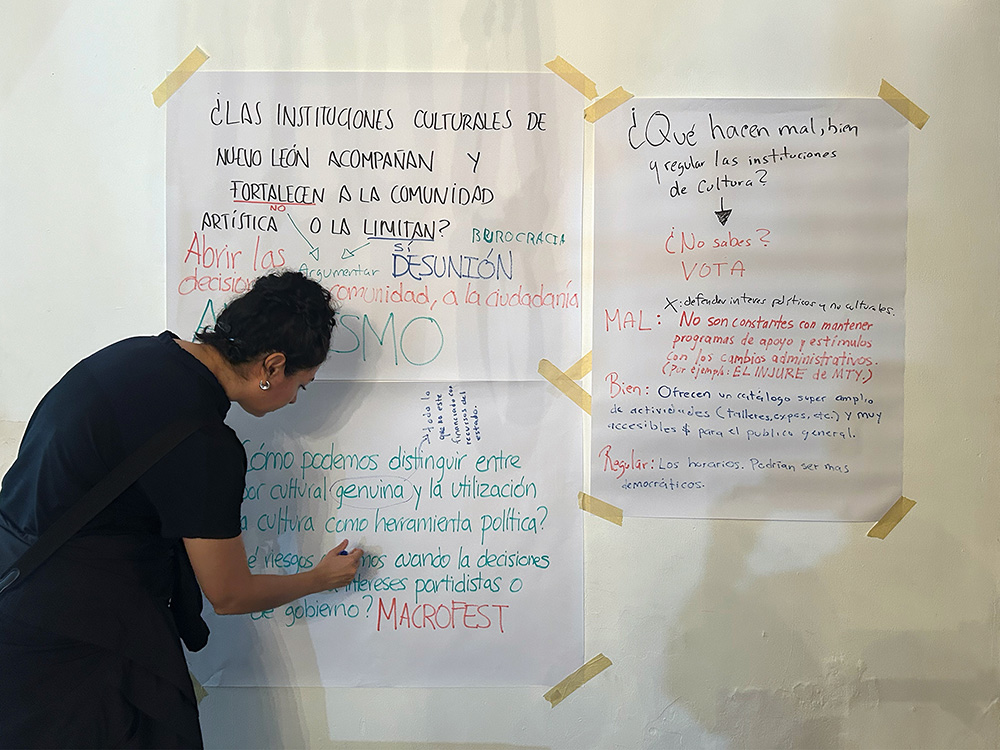 ¿LAS INSTITUCIONES CULTURALES DE
NUEVO LEÓN ACOMPAÑAN Y
FORTALECEN A LA COMUNIDAD
NO
ARTÍSTICA O LA LIMITAN?
BUROCRACIA
SÍ
Abrir las
Argumentar
DESUNIÓN
comunidad, a la ciudadanía
SMO
todo lo
que no este
financiado con
recursos del
estado.
Cómo podemos distinguir entre
cultural genuina y la utilización
cultura como herramienta política?
riesgos cuando la decisiones
intereses partidistas o
de gobierno? MACROFEST
¿Qué hacen mal, bien
y regular las instituciones
de cultura?
¿No sabes?
VOTA
X: defender interes políticos y no culturales.
MAL: No son constantes con mantener
programas de apoyo y estímulos
con los cambios administrativos.
(Por ejemplo: EL INJURE de MTY.)
Bien: Ofrecen un catálogo super amplio
de actividades (talleres, expos, etc.) y muy
accesibles $ para el publico general.
Regular: Los horarios. Podrían ser mas
democráticos.